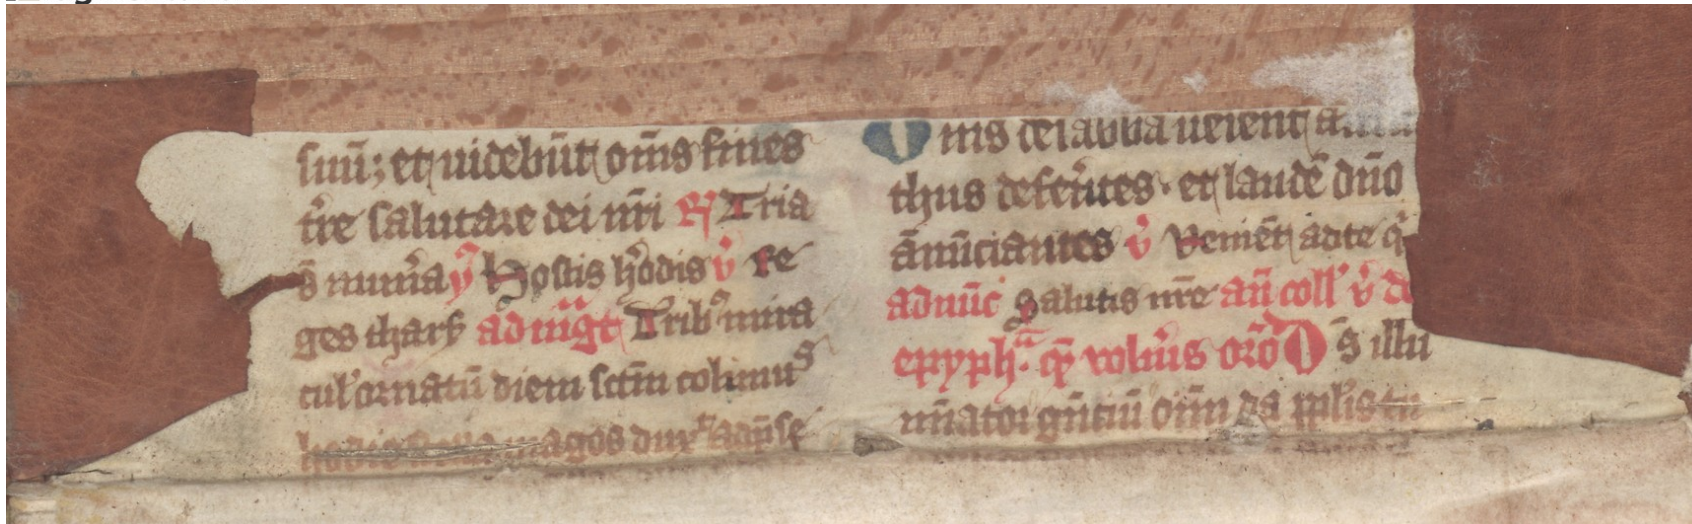 suu; et uidebūt om̄s fines
tr̄e salutare dei nr̄i R Tria
s̄ mun̄a ỹ Hostis h̓odis v̓ Re
ges thars̄ ad mg̃t Trib9 mira
cul̓ ornatū diem scm̄ colimus
hodie stella magos dux̓ ad p̄se
nis de saba ueient
thus defer̄tes · et laudē dn̄o
ānūciantes v̓ Veniēt ad te q̓
ad nūc̄ Salutis nr̄e an̄ coll̓ v̓ de
epyph̓a · qꝫ volūis or̄o D s̄ illu
mn̄ator gn̄tiū om̄ da ppl̓is tu